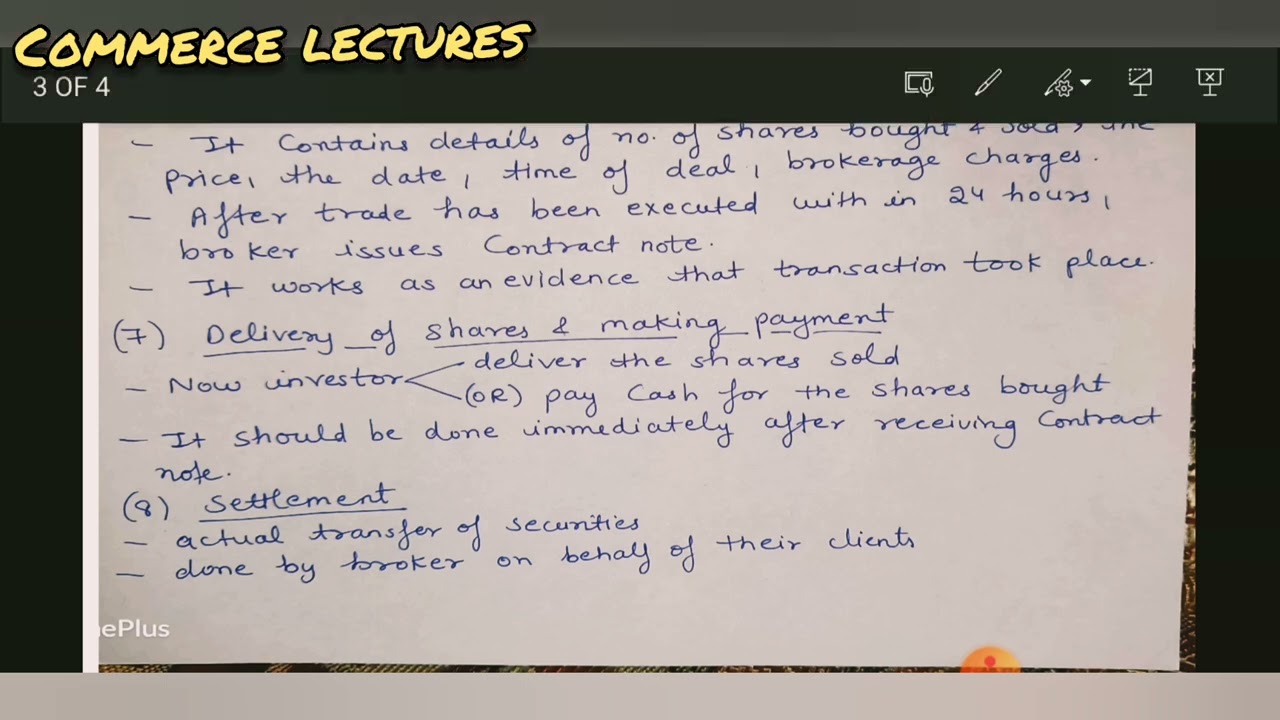 COMMERCE LECTURES
3 OF 4
- It Contains details of no. of shares bought & sold, the
price, the date, time of deal, brokerage charges.
- After trade has been executed with in 24 hours,
broker issues Contract note.
- It works as an evidence that transaction took place.
(7) Delivery of shares & making payment
- Now investor deliver the shares sold
(OR) pay Cash for the shares bought
- It should be done immediately after receiving Contract
note.
(8) Settlement
- actual transfer of securities
- done by broker on behalf of their clients
ePlus